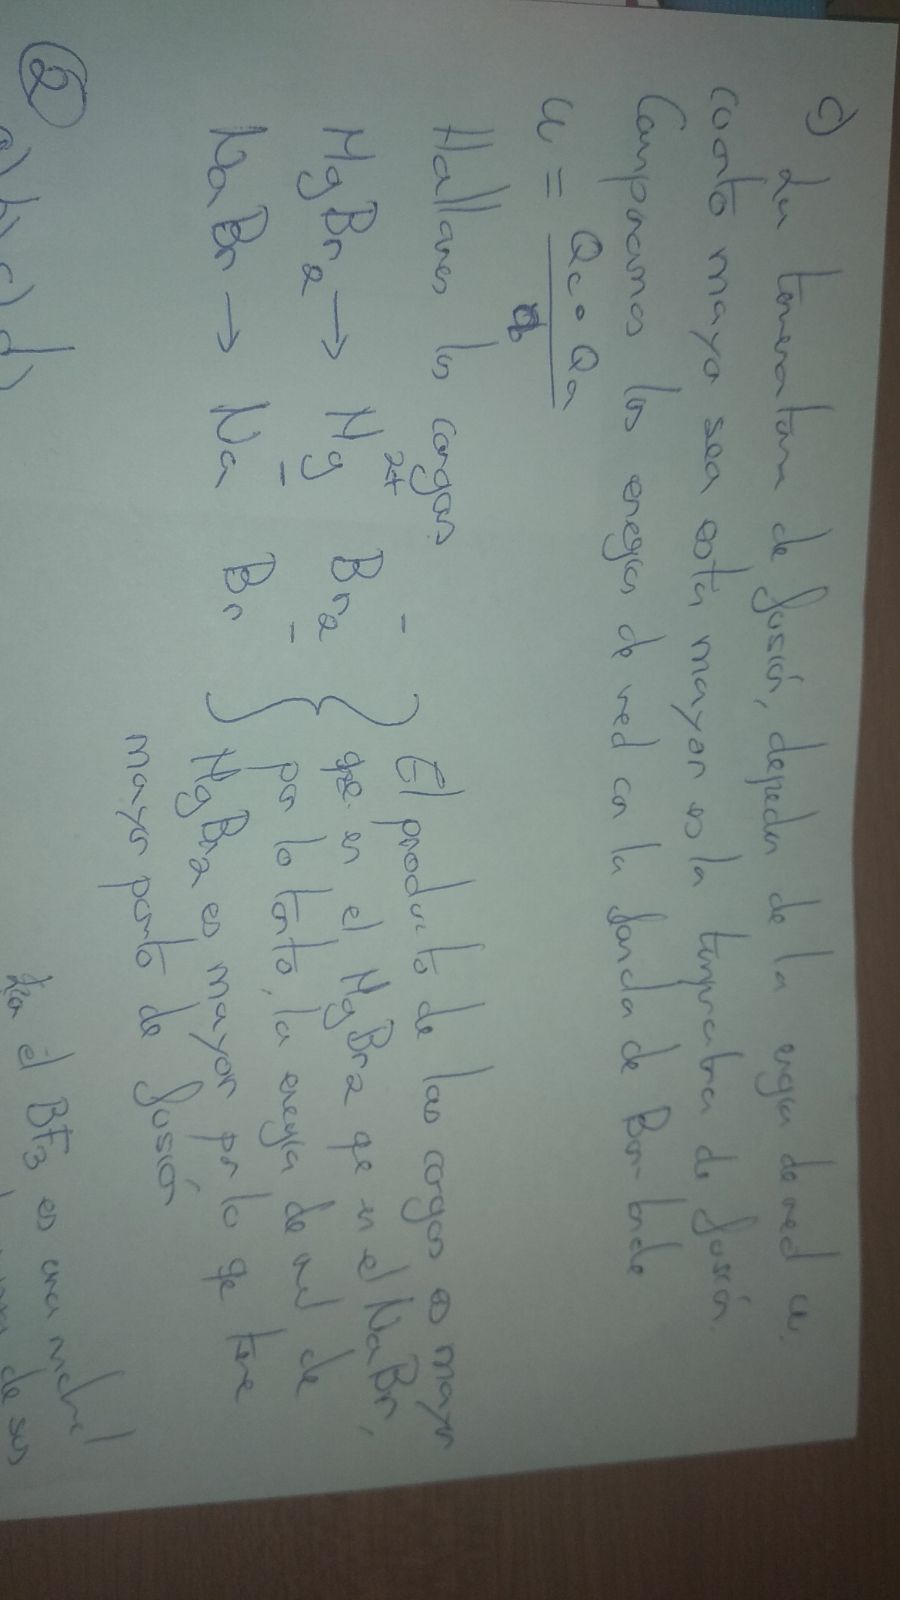 c) La temeratura de fusión, depeden de la ergia de red u.
cuanto mayo sea esta mayor es la tempratura de fusión.
Compramos las energias de red con la fórmula de Born-Lande
u = Qc · Qa
d
Hallamos las cargas
MgBr2 → Mg2+ Br2-
NaBr → Na- Br-
El producto de las cargas es mayor
que en el MgBr2 qe en el NaBr,
por lo tanto, la energía de red de
MgBr2 es mayor por lo qe tiene
mayor punto de fusión
2
a) b) c) d)
el BF3 es una
de sus